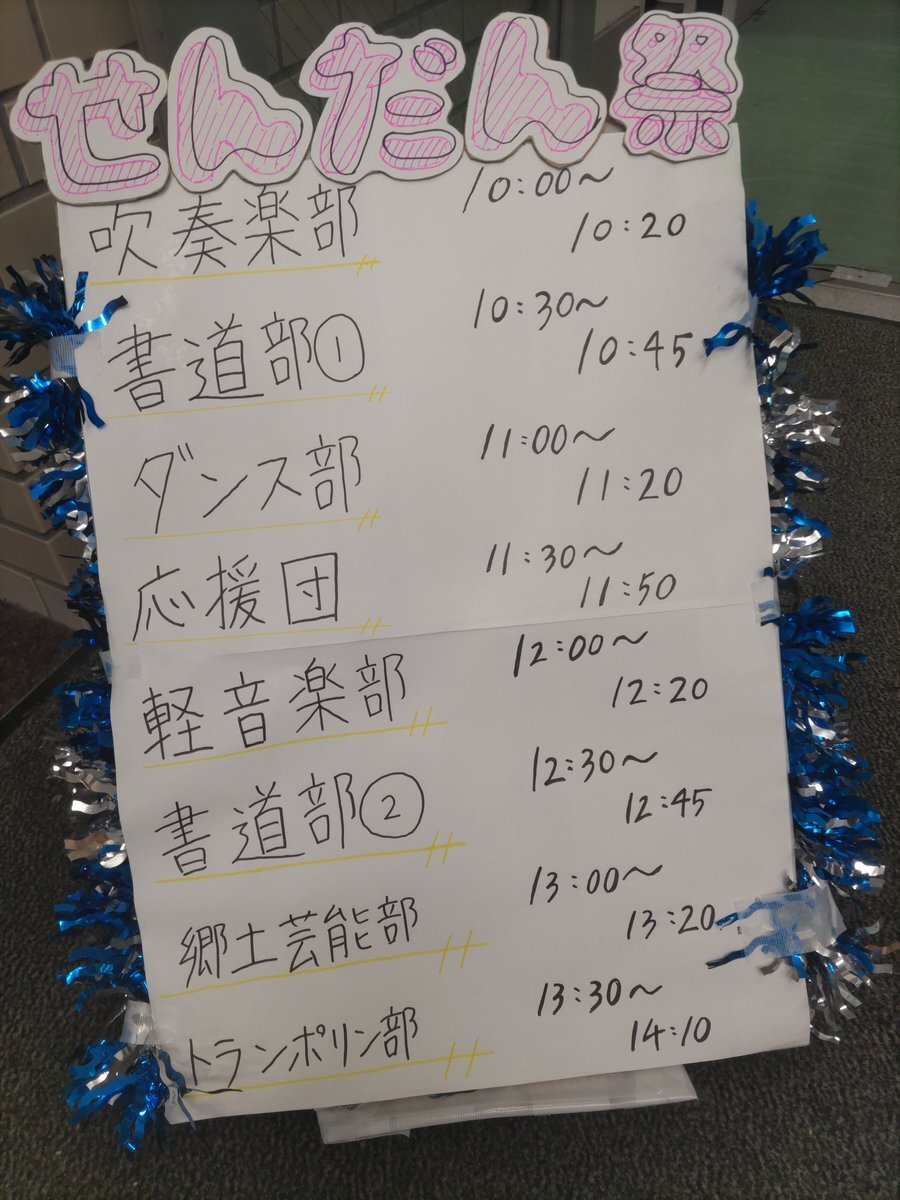 せんだん祭
吹奏楽部 10:00〜
10:20
書道部① 10:30〜
10:45
ダンス部 11:00〜
11:20
応援団 11:30〜
11:50
軽音楽部 12:00〜
12:20
書道部② 12:30〜
12:45
郷土芸能部 13:00〜
13:20
トランポリン部 13:30〜
14:10